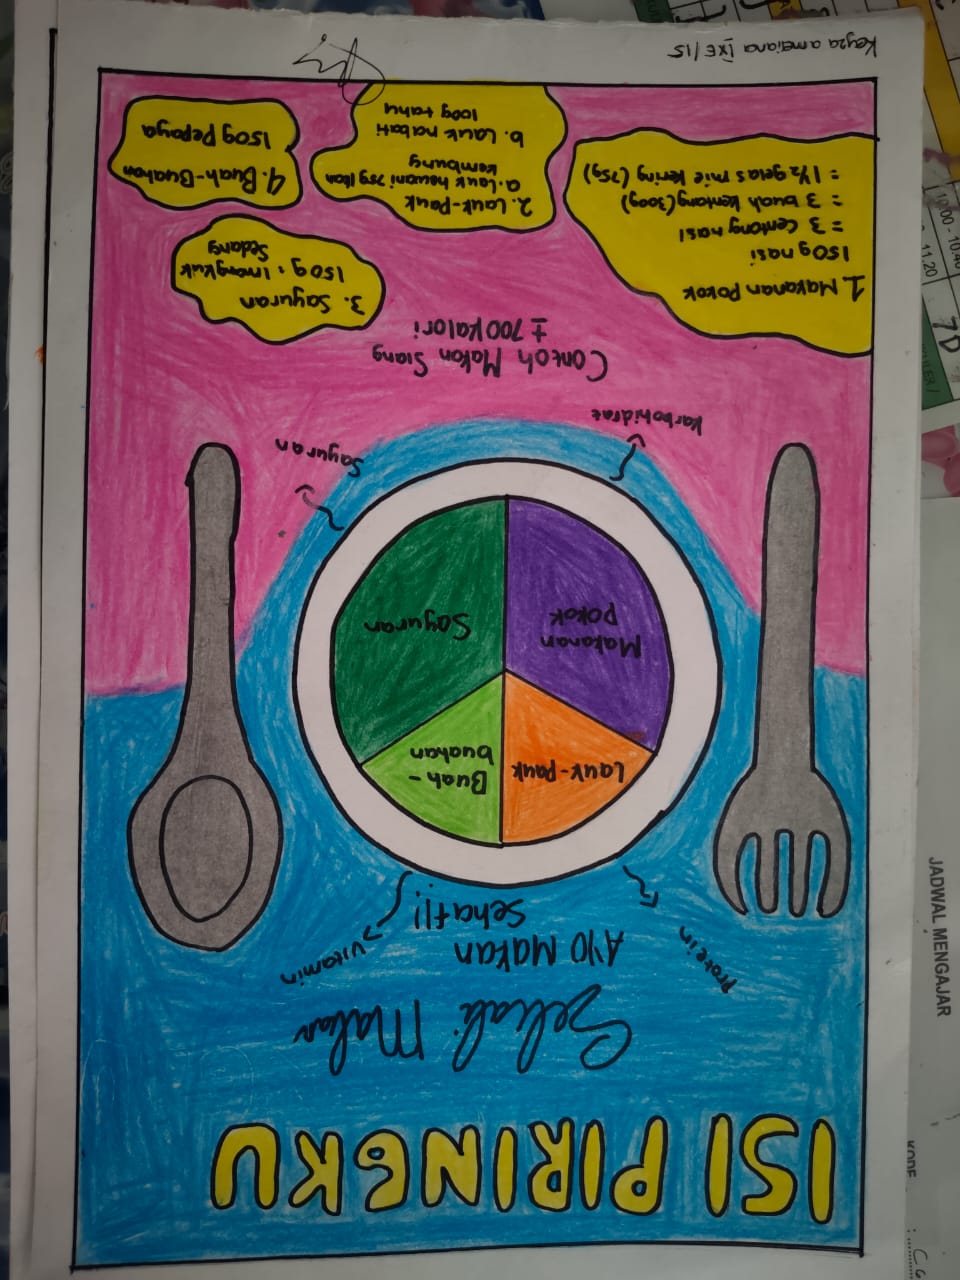 ISI PIRINGKU
Sekali Makan
AYO MAKAN
Sehat!!
Protein
Vitamin
Lauk-Pauk
Buah-
buahan
Makanan
Pokok
Sayuran
Karbohidrat
Sayuran
Contoh Makan Siang
± 700 kalori
1. Makanan Pokok
150g nasi
= 3 centong nasi
= 3 buah kentang (300g)
= 1 1/2 gelas mie kering (75g)
2. Lauk-Pauk
a. Lauk hewani 75g Ikan
kembung
b. Lauk nabati
100g tahu
3. Sayuran
150g = 1 mangkuk
Sedang
4. Buah-Buahan
150g Pepaya
Keyza ameliana IXE/15
JADWAL MENGAJAR
KODE
10:00 - 10:40
11.20
7D